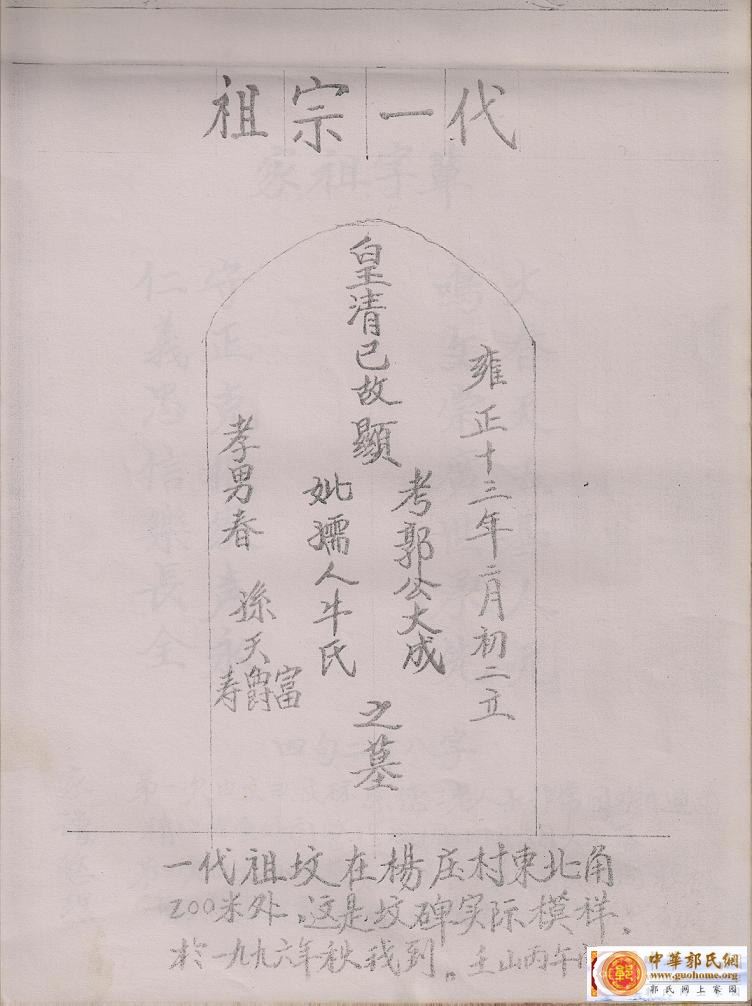 祖宗一代
雍正十三年二月初二立
皇清已故顯
考郭公大成
妣孺人牛氏
之墓
孝男春
孫天
富
爵
寿
一代祖坟在楊庄村東北角
200米外，这是坟碑实际模样。
於一九九六年秋我到。壬山丙午
中華郭氏網
www.guohome.org
郭氏网上家园